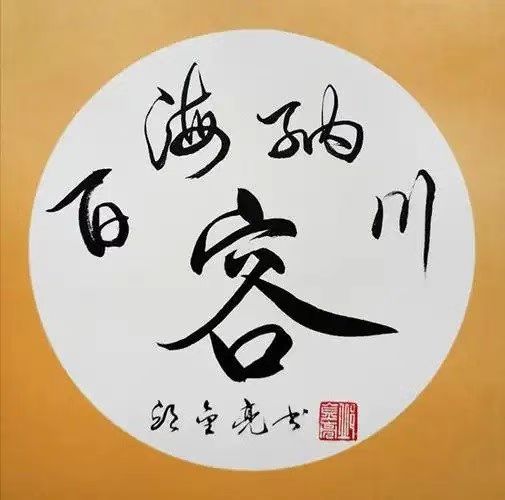 海纳
百川
容
金亮书